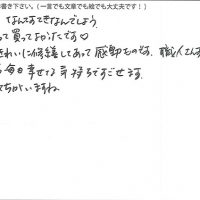 書き下さい。(一言でも文章でも絵でも大丈夫です！)
なんてすてきなんでしょう
って買ってよかったです♡
きれいに修繕してあって感動ものです。職人さん
毎日幸せな気持ちですごせます。
ちがいますね